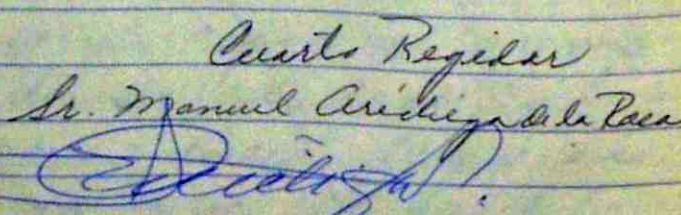 Cuarto Regidor
Sr. Manuel Arechiga de la Rosa